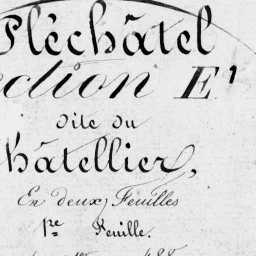 Pléchâtel
ection E¹
dite du
hâtellier,
En deux Feuilles
1re Feuille.